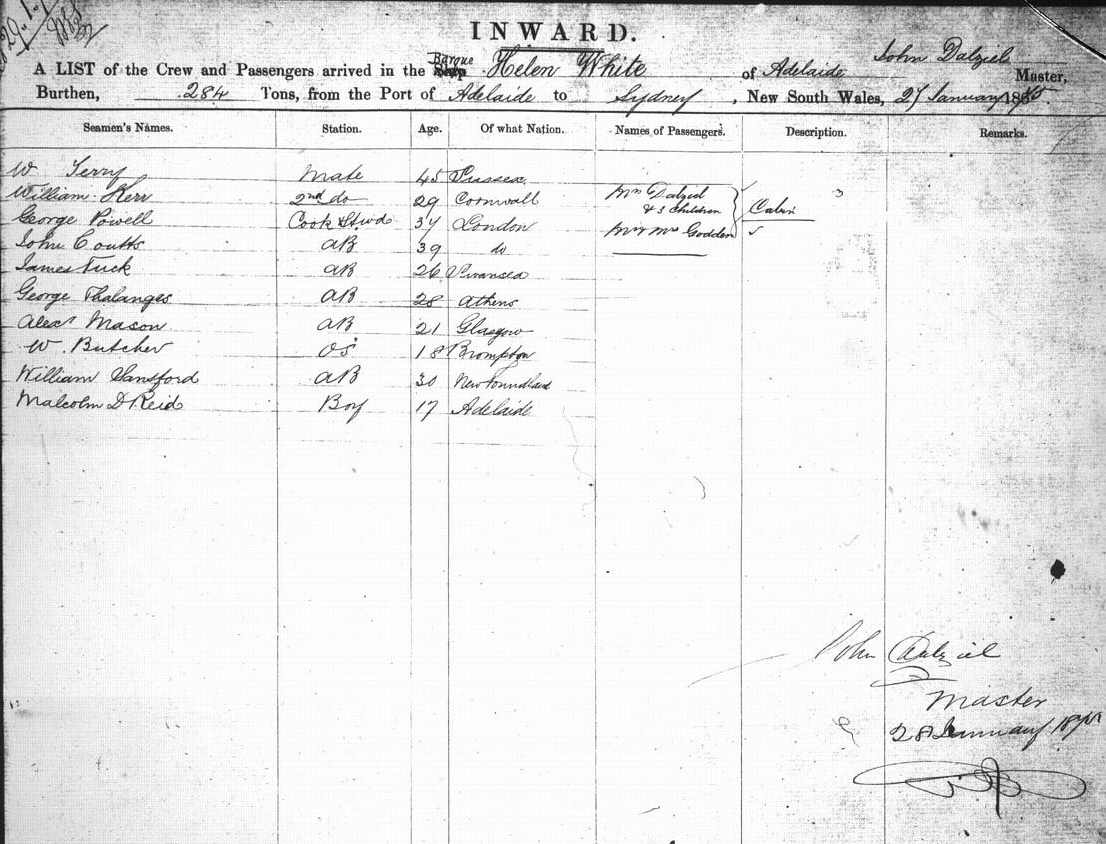 INWARD.
A LIST of the Crew and Passengers arrived in the Barque Helen White of Adelaide John Dalziel Master,
Burthen, 284 Tons, from the Port of Adelaide to Sydney, New South Wales, 27 January 18
Seamen's Names. Station. Age. Of what Nation. Names of Passengers. Description. Remarks.
W Terry Mate 45 Sussex
William Kerr 2nd do 29 Cornwall Mrs Dalziel
& 3 Children Cabin
George Powell Cook & Stwd 34 London Mr & Mrs Godden
John Coutts AB 39 do
James Tuck AB 26 Swansea
George Thalanges AB 28 Athens
Alexr Mason AB 21 Glasgow
W. Butcher OS 18 Brompton
William Sansford AB 30 Newfoundland
Malcolm D Reid Boy 17 Adelaide
John Dalziel
Master
28 January